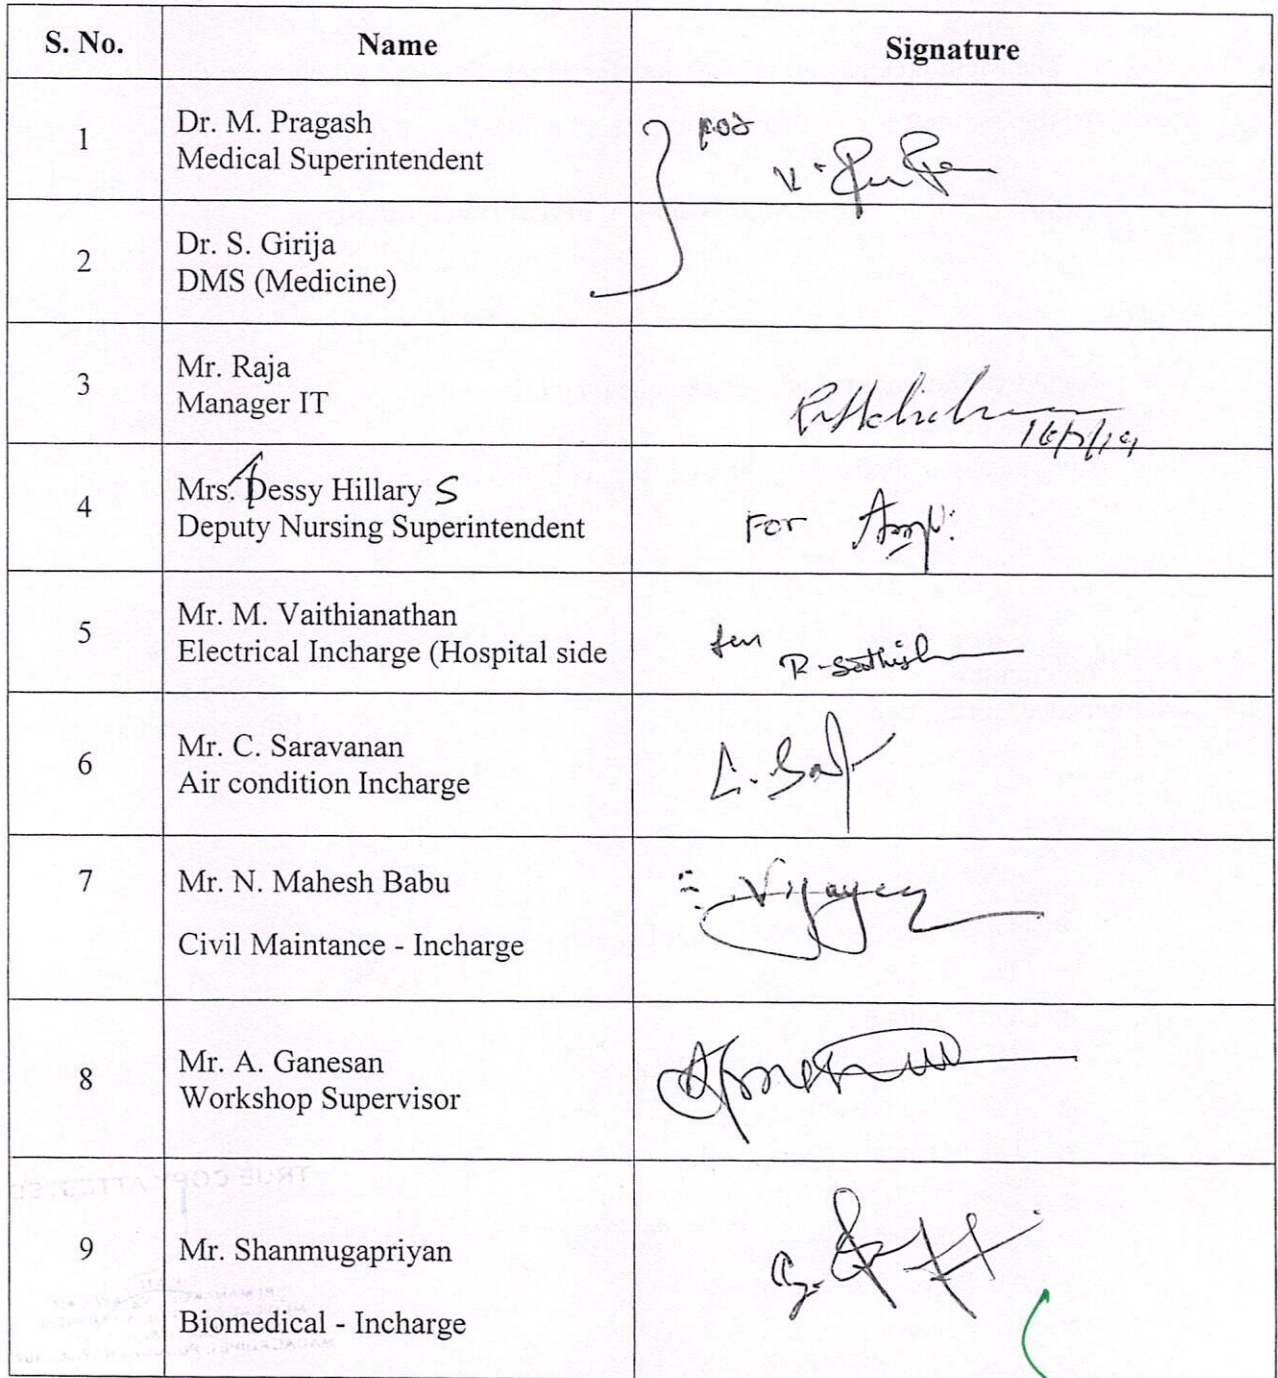 S. No. Name Signature
1 Dr. M. Pragash
Medical Superintendent
2 Dr. S. Girija
DMS (Medicine)
3 Mr. Raja
Manager IT
4 Mrs. Dessy Hillary S
Deputy Nursing Superintendent
For
5 Mr. M. Vaithianathan
Electrical Incharge (Hospital side
R-Sathish
6 Mr. C. Saravanan
Air condition Incharge
7 Mr. N. Mahesh Babu
Vijayan
Civil Maintance - Incharge
8 Mr. A. Ganesan
Workshop Supervisor
9 Mr. Shanmugapriyan
Biomedical - Incharge
TRUE COPY ATTESTED